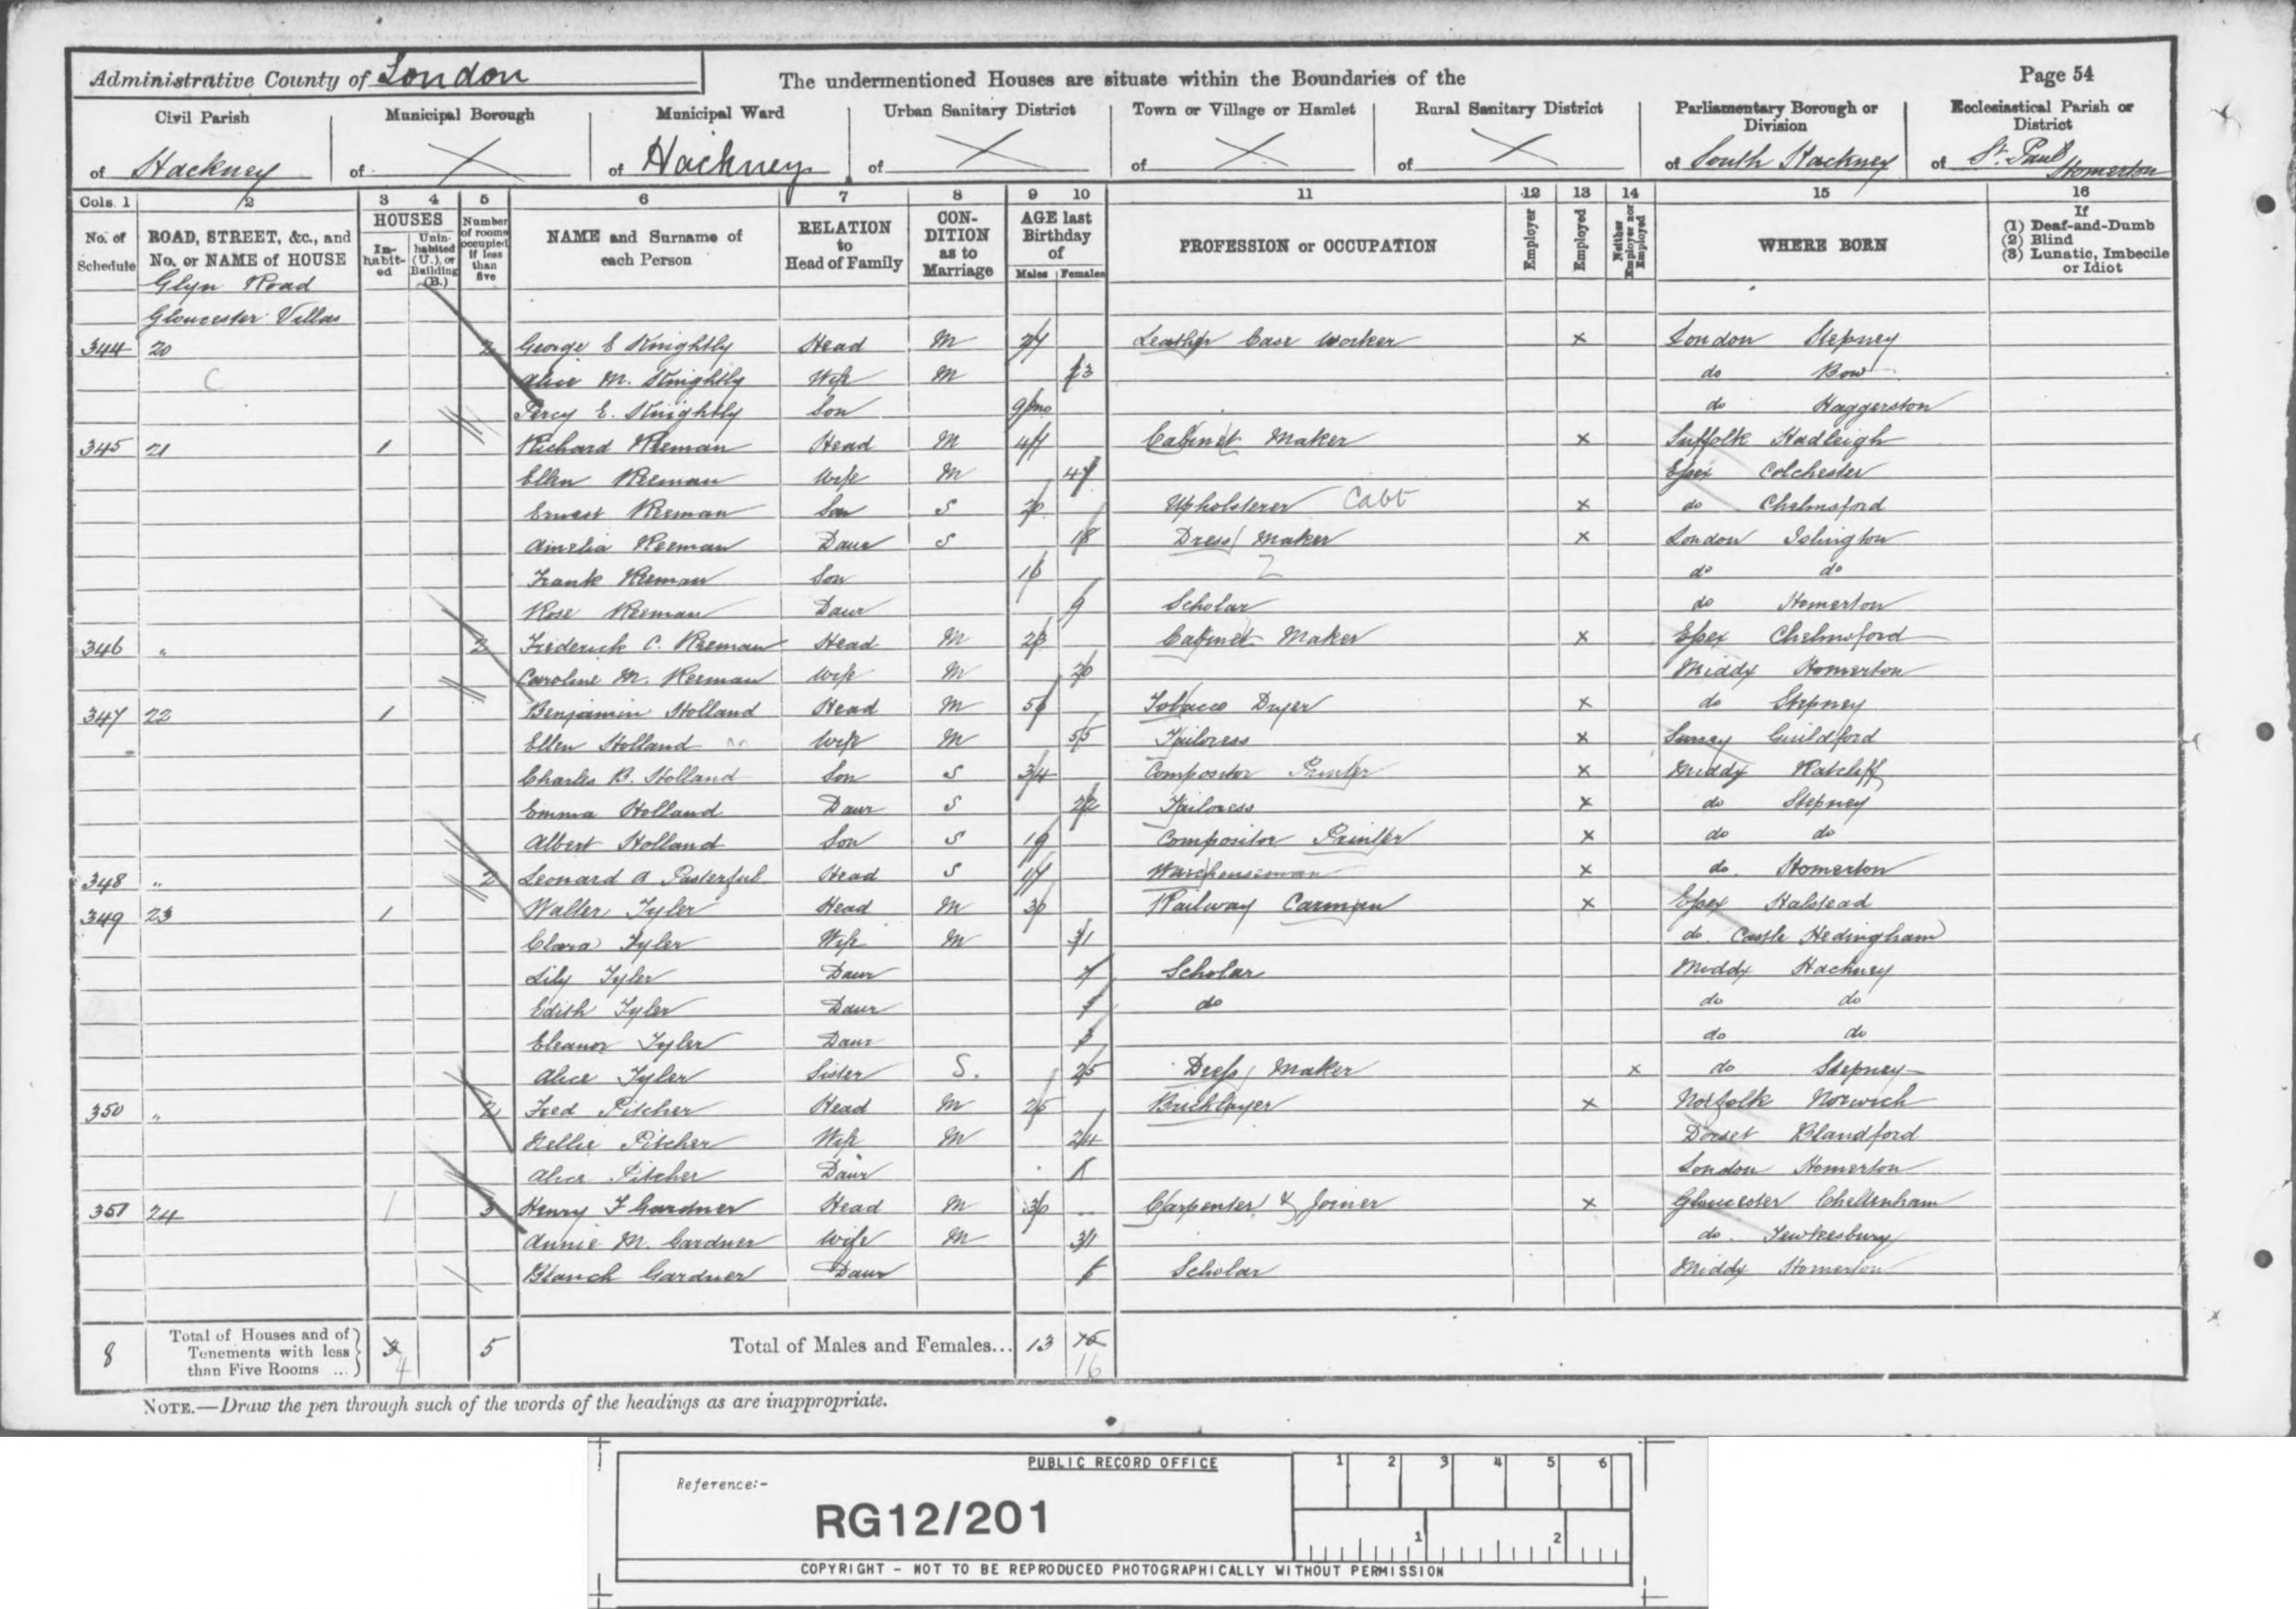 Administrative County of London
The undermentioned Houses are situate within the Boundaries of the
Page 54
Civil Parish of Hackney
Municipal Borough of
Municipal Ward of Hackney
Urban Sanitary District of
Town or Village or Hamlet of
Rural Sanitary District of
Parliamentary Borough or Division of South Hackney
Ecclesiastical Parish or District of St. Paul Homerton
Cols. 1 2 3 4 5 6 7 8 9 10 11 12 13 14 15 16
No. of Schedule
ROAD, STREET, &c., and No. or NAME of HOUSE
HOUSES
In-habit-ed
Unin-habited (U.), or Building (B.)
Number of rooms occupied if less than five
NAME and Surname of each Person
RELATION to Head of Family
CON-DITION as to Marriage
AGE last Birthday of
Males Females
PROFESSION or OCCUPATION
Employer
Employed
Neither Employer nor Employed
WHERE BORN
If
(1) Deaf-and-Dumb
(2) Blind
(3) Lunatic, Imbecile or Idiot
Glyn Road
Gloucester Villas
344 20 2 George E Knightly Head M Leather Case Worker x London Stepney
C Alice M. Knightly Wife M 23 do Bow
Percy E. Knightly Son 9 mo do Haggerston
345 21 1 Richard Reeman Head M 47 Cabinet Maker x Suffolk Hadleigh
Ellen Reeman Wife M 47 Essex Colchester
Ernest Reeman Son S 20 Upholsterer Cabt x do Chelmsford
Amelia Reeman Daur S 18 Dress Maker x London Islington
Frank Reeman Son do do
Rose Reeman Daur 9 Scholar do Homerton
346 " 2 Frederick C. Reeman Head M 23 Cabinet Maker x Essex Chelmsford
Caroline M. Reeman Wife M 20 Middx Homerton
347 22 1 Benjamin Holland Head M Tobacco Dryer x do Stepney
Ellen Holland Wife M 55 Tailoress x Surrey Guildford
Charles B. Holland Son S 34 Compositor Printer x Middx Ratcliff
Emma Holland Daur S 22 Tailoress x do Stepney
Albert Holland Son S 19 Compositor Printer x do do
348 " 2 Leonard A Head S 17 Warehouseman x do. Homerton
349 23 1 Walter Tyler Head M 30 Railway Carman x Essex Halstead
Clara Tyler Wife M 31 do. Castle Hedingham
Lily Tyler Daur 7 Scholar Middx Hackney
Edith Tyler Daur 5 do do do
Eleanor Tyler Daur 3 do do
Alice Tyler Sister S. 25 Dress Maker x do Stepney
350 " 2 Fred Pitcher Head M 25 Bricklayer x Norfolk Norwich
Nellie Pitcher Wife M 24 Dorset Blandford
Alice Pitcher Daur 1 London Homerton
351 24 1 3 Henry F Gardner Head M 30 Carpenter & Joiner x Gloucester Cheltenham
Annie M. Gardner Wife M 31 do. Tewkesbury
Blanch Gardner Daur Scholar Middx Homerton
8 Total of Houses and of Tenements with less than Five Rooms ... 3 4 5 Total of Males and Females... 13 15 16
NOTE.—Draw the pen through such of the words of the headings as are inappropriate.
PUBLIC RECORD OFFICE
1 2 3 4 5 6
Reference:-
RG12/201
1 2
COPYRIGHT - NOT TO BE REPRODUCED PHOTOGRAPHICALLY WITHOUT PERMISSION